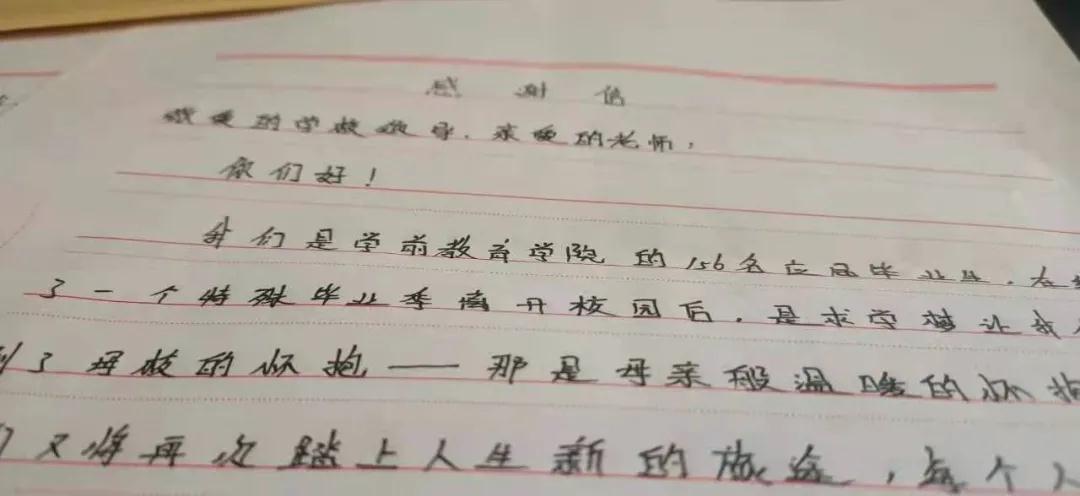 感谢信
敬爱的学校领导、亲爱的老师，
你们好！
我们是学前教育学院的156名应届毕业生，在
了一个特殊毕业季离开校园后，是求学梦让我
到了母校的怀抱——那是母亲般温暖的怀抱
们又将再次踏上人生新的旅途，每个人